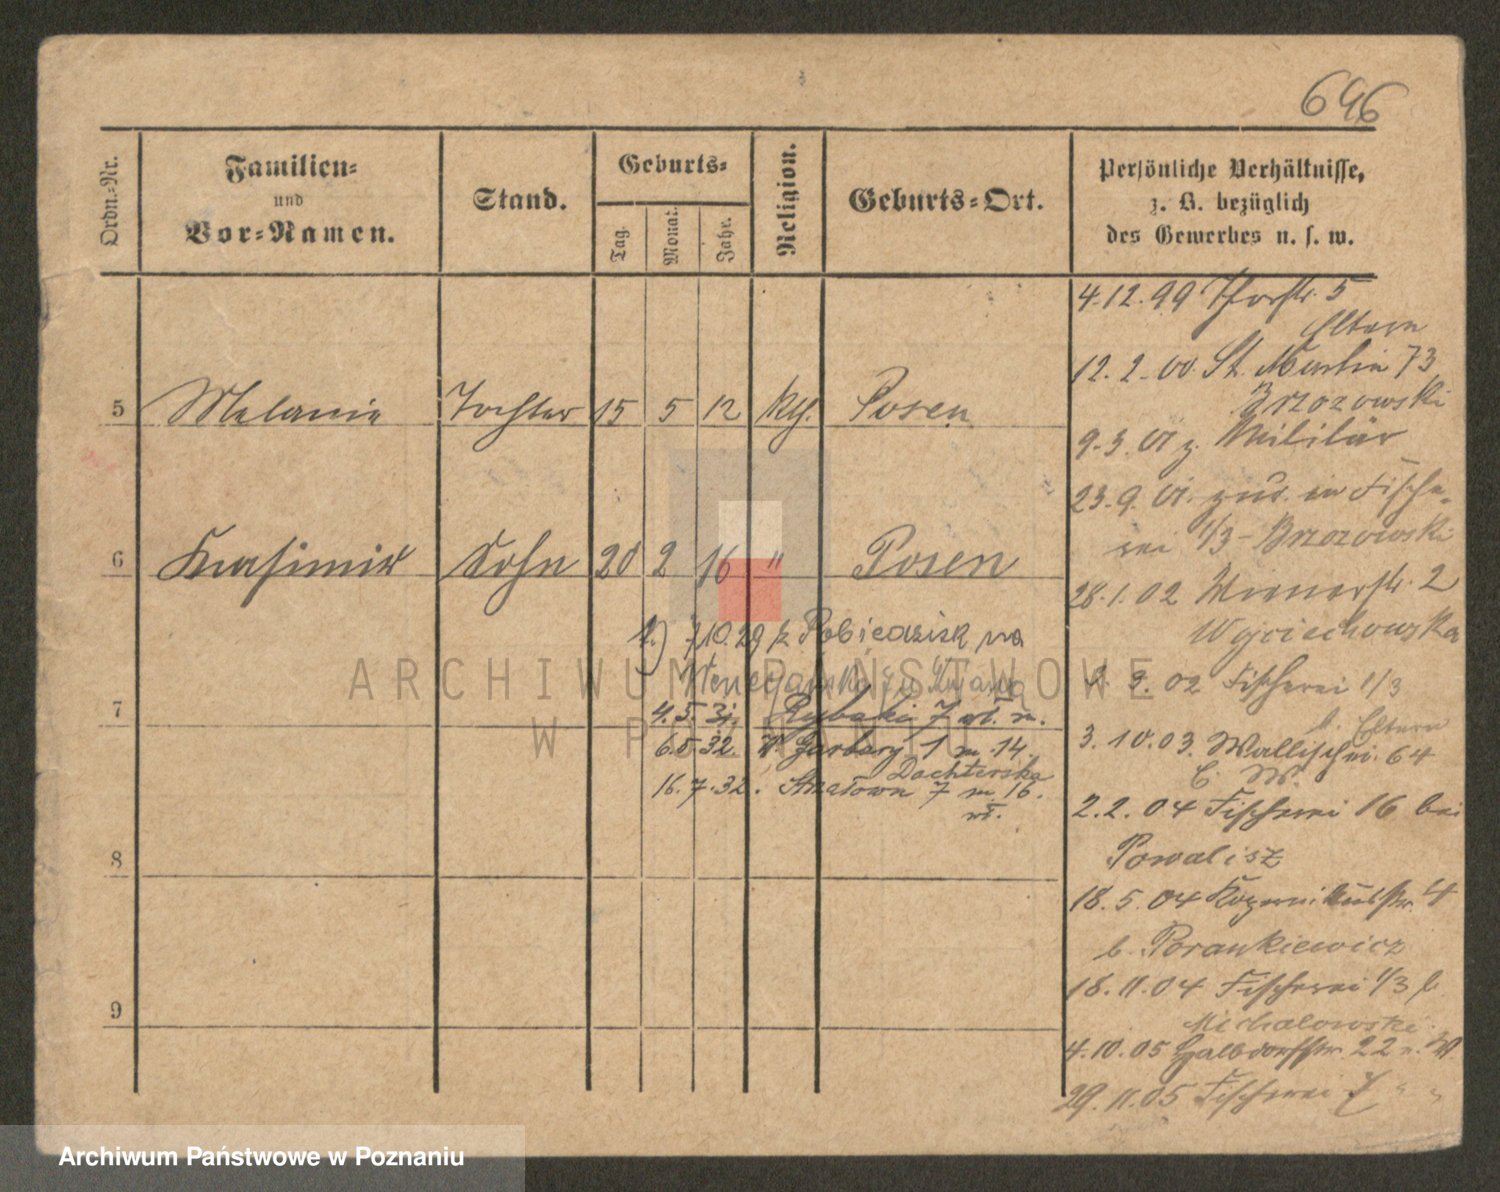 646
Ordn.-Nr.
Familien-
und
Vor-Namen.
Stand.
Geburts-
Tag.
Monat.
Jahr.
Religion.
Geburts-Ort.
Persönliche Verhältnisse,
z. B. bezüglich
des Gewerbes u. s. w.
5 Melanie Tochter 15 5 12 Posen
6 Kasimir Sohn 20 2 16 " Posen
7
8
9
7.10.29 z Pobiedzisk na
4.5.31. Rybaki 7
6.5.32. Garbary 1 m 14.
Dachterska
16.7.32. 7 m. 16.
wł.
4.12.99 Thorstr. 5
Eltern
12.2.00 St. Martin 73
Brzozowski
9.3.01 z. Militär
23.9.01. zur. in Fische-
rei 1/3 - Brzozowski
28.1.02 Wienerstr. 2
Wojciechowska
9.02 Fischerei 1/3
b. Eltern
3.10.03. Wallischei. 64
E. W.
2.2.04 Fischerei 16 bei
Powalisz
18.5.04 Kopernikusstr. 4
b. Porankiewicz
18.11.04 Fischerei 1/3 b
Michalowski.
4.10.05 Halbdorfstr. 22
29.11.05 Fischerei 7 " "
ARCHIWUM PAŃSTWOWE
W POZNANIU
Archiwum Państwowe w Poznaniu